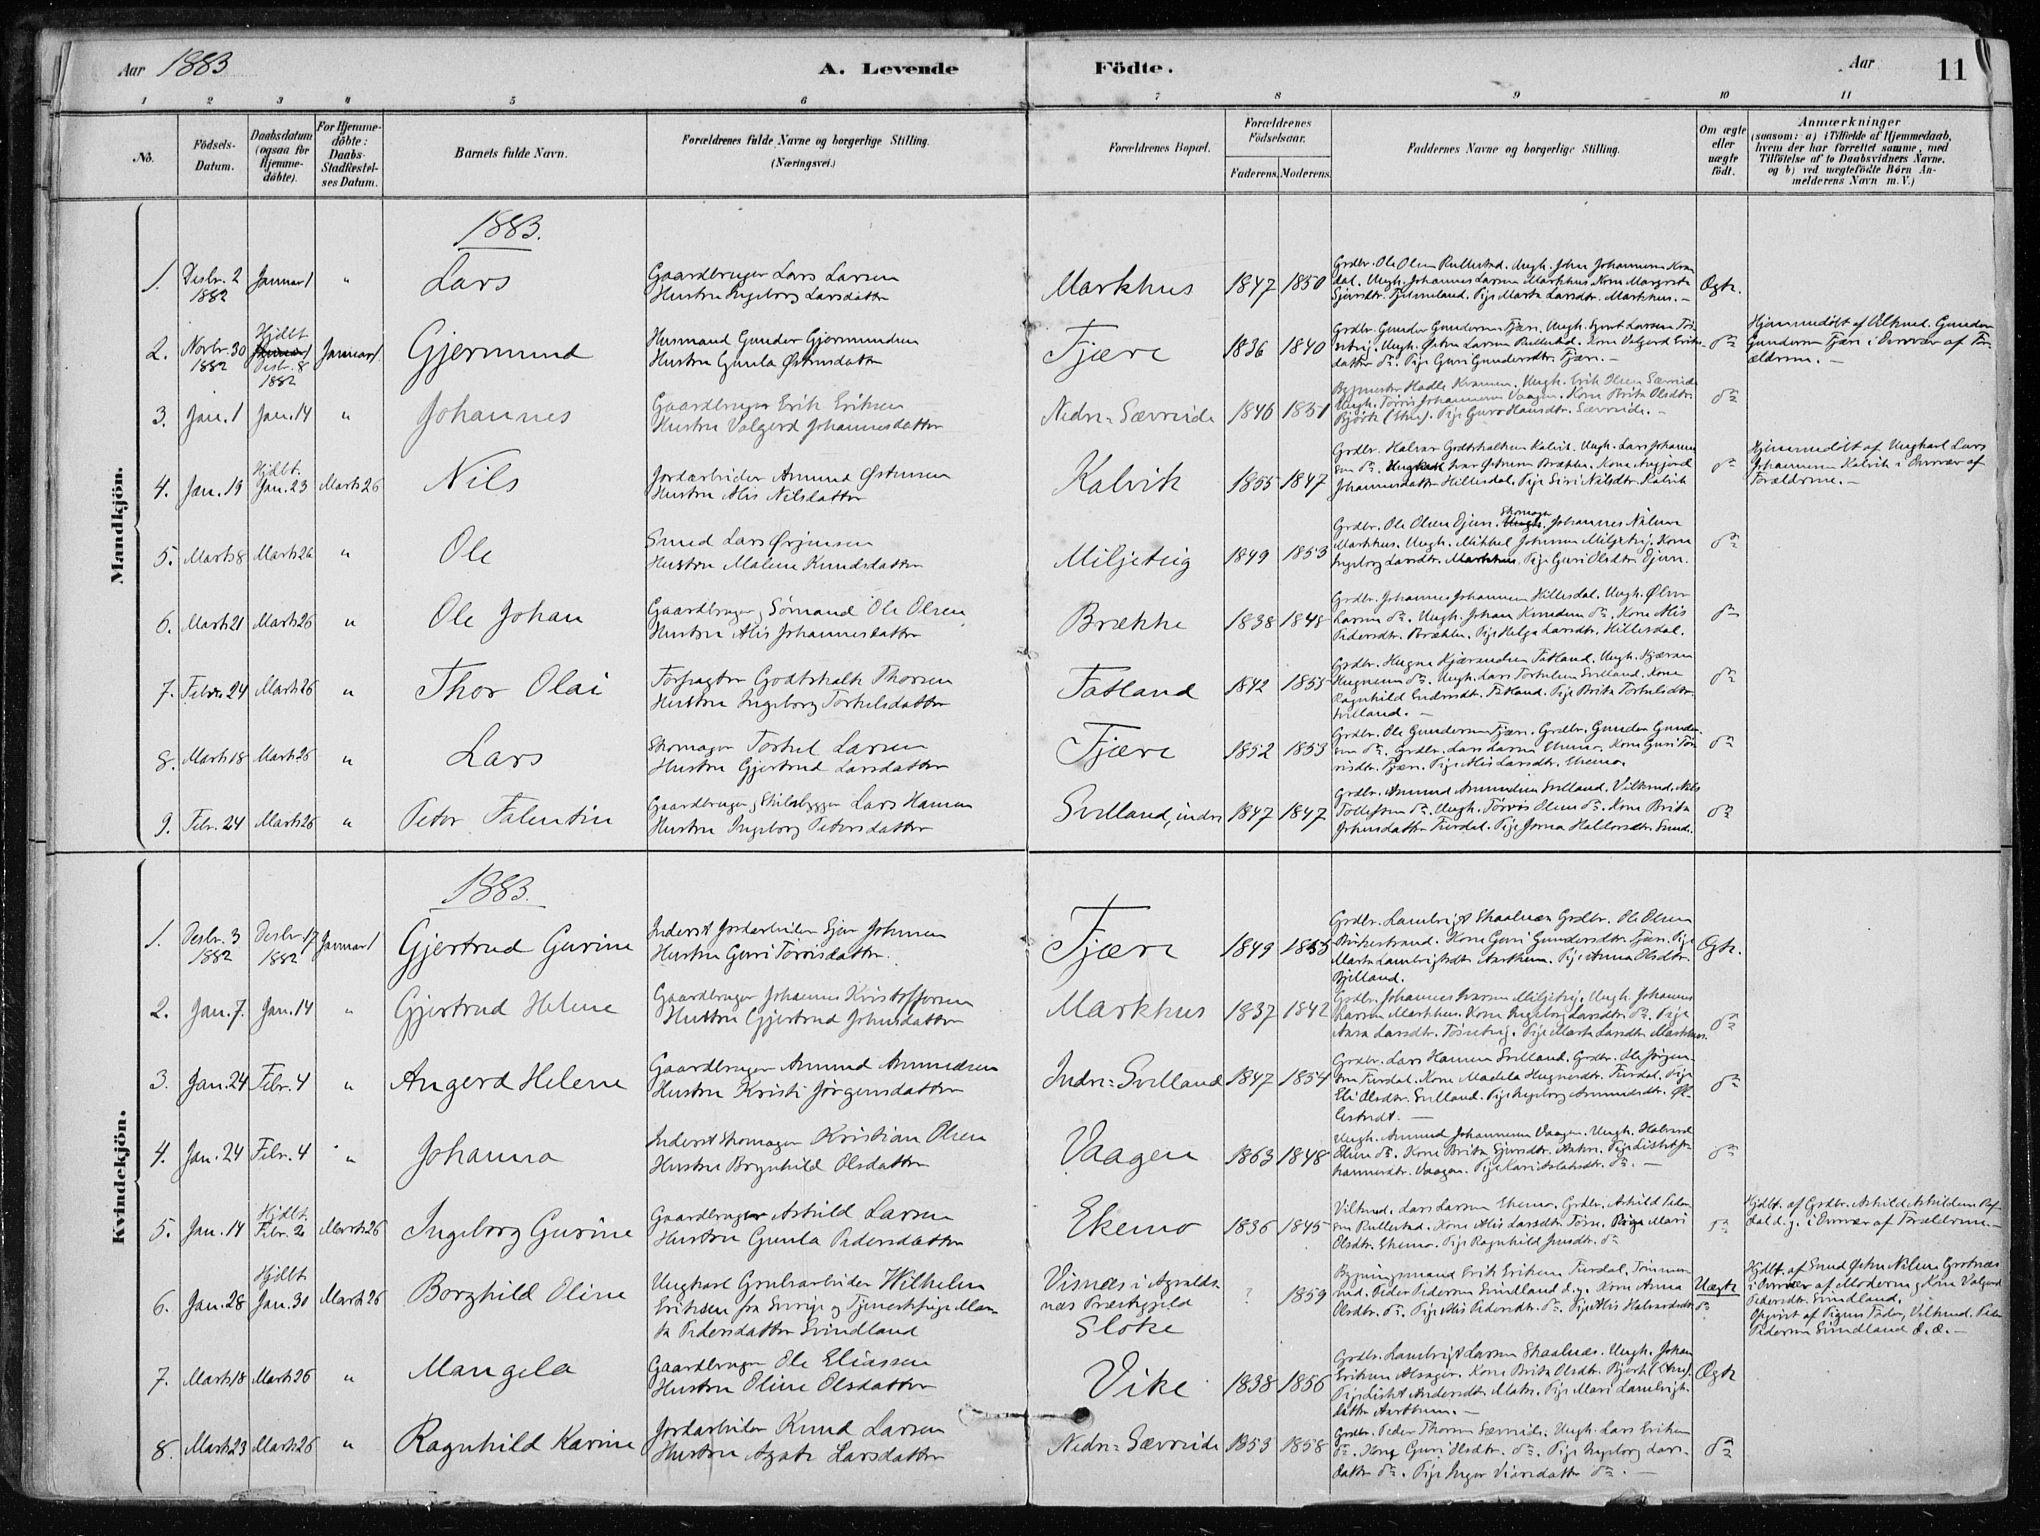 Aar 1883 A. Levende Födte. Aar 11
1 2 3 4 5 6 7 8 9 10 11
No. Födsels-Datum. Daabsdatum (ogsaa for Hjemme-döbte). For Hjemme-döbte: Daabs-Stadfæstel-ses Datum. Barnets fulde Navn. Forældrenes fulde Navne og borgerlige Stilling. (Næringsvei.) Forældrenes Bopæl. Forældrenes Födselsaar. Faderens. Moderens. Faddernes Navne og borgerlige Stilling. Om ægte eller uægte födt. Anmærkninger (saasom: a) i Tilfælde af Hjemmedaab, hvem der har forrettet samme, med Tilföielse af to Daabsvidners Navne, og b) ved uægtefödte Børn An-melderens Navn m. V.)
Mandkjön.
1883.
1. Desbr. 2 1882 Januar 1 " Lars
Gaardbruger Lars Larsen
Hustru Ingeborg Larsdatter
Markhus 1847 1850
Grdbr. Ole Olsen Rullestad. Ungk. John Johannesen
Ungk. Johannes Larsen Markhus. Kone Margreta
Pige Marta Larsdtr. Markhus.
Ægte.
2. Novbr. 30 1882 Hjdbt. Desbr. 8 1882 Januar 1. Gjermund
Husmand Gunder Gjermundsen
Hustru Gunla Østensdatter
Fjære 1836 1840
Grdbr. Gunder Gundersen Fjære. Ungk. Sjurt Larsen
Ungk. Østen Larsen Rullestad. Kone Valgerd
datter do. Pige Guri Gundersdtr. Fjære.
do
Hjemmedøbt af Gunder
Gundersen Fjære i Overvær af For-
ældrene.
3. Jan. 1 Jan. 14 " Johannes
Gaardbruger Erik Eriksen
Hustru Valgerd Johannesdatter
Nedre-Sævreide 1846 1851
Ungk. Erik Olsen Sævreide
Ungk. Tørris Johannesen Vaagen. Kone Brita Olsdtr.
Pige Guro Hansdtr. Sævreide.
do
4. Jan. 19 Hjdbt. Jan. 23 Marts 26 Nils
Jordarbeider Amund Østensen
Hustru Alis Nilsdatter
Kalvik 1855 1847
Grdbr. Halvor Godtskalksen Kalvik. Ungk. Lars Johannes-
sen do. Ivar Østensen Brække. Kone
Johannesdatter Hillesdal. Pige Siri Nilsdtr. Kalvik
do
Hjemmedøbt af Ungkarl Lars
Johannesen Kalvik i Overvær af
Forældrene.
5. Marts 8 Marts 26 " Ole
Smed Lars Ørjansen
Hustru Malene Knudsdatter
Miljeteig 1849 1853
Grdbr. Ole Olsen Ejene. Skomager Johannes Nilsen
Markhus. Ungk. Mikkel Johnsen Miljeteig. Kone
Ingeborg Larsdtr. Markhus. Pige Guri Olsdtr. Ejene.
do
6. Marts 21 Marts 26 " Ole Johan
Gaardbruger, Sømand Ole Olsen
Hustru Alis Johannesdatter
Brække 1838 1848
Grdbr. Johannes Johannesen Hillesdal. Ungk.
Larsen do. Ungk. Johan Knudsen do. Kone Alis
Pedersdtr. Brække. Pige Helga Larsdtr. Hillesdal.
do
7. Febr. 24 Marts 26 " Thor Olai
Forpagter Godtskalk Thorsen
Hustru Ingeborg Torkelsdatter
Fatland 1842 1855
Grdbr. Hugne Kjærandsen Fatland. Ungk. Kjæran
Hugnesen do. Ungk. Lars Torkelsen Svelland. Kone
Ragnhild Endresdtr. Fatland. Pige Brita Torkelsdtr.
Svelland.
do
8. Marts 18 Marts 26 " Lars
Skomager Torkel Larsen
Hustru Gjertrud Larsdatter
Fjære 1852 1853
Grdbr. Ole Gundersen Fjære. Grdbr. Gunder Gunder-
sen do. Grdbr. Lars Larsen Ekemo. Kone Guri Tør-
risdtr. Fjære. Pige Alis Larsdtr. Ekemo.
do
9. Febr. 24 Marts 26 " Peter Falentin
Gaardbruger, Skibsbygger Lars Hansen
Hustru Ingeborg Petersdatter
Svelland, indre 1847 1847
Grdbr. Amund Amundsen Svelland. Nils
Tollefsen do. Ungk. Tørris Olsen do. Kone Brita
Johnsdatter Furdal. Pige Haldorsdtr.
do
Kvindekjön.
1883.
1. Desbr. 3 1882 Desbr. 17 1882 Januar 1 Gjertrud Gurine
Inderst Jordarbeider Sjur Johnsen
Hustru Guri Tørrisdatter.
Fjære 1849 1855
Grdbr. Lambrigt Skaalnæs. Grdbr. Ole Olsen
Birkestrand. Kone Guri Gundersdtr. Fjære. Pige
Marta Lambrigtsdtr. Aartheim. Pige Anna Olsdtr.
Fjelland.
Ægte.
2. Jan. 7. Jan. 14 " Gjertrud Helene
Gaardbruger Johannes Kristoffersen
Hustru Gjertrud Johnsdatter
Markhus 1837 1842
Grdbr. Johannes Ivarsen Miljeteig. Ungk. Johannes
Larsen Markhus. Kone Ingeborg Larsdtr. do. Pige
Anna Larsdtr. Pige Marta Larsdtr. Markhus.
do
3. Jan. 24 Febr. 4 " Angerd Helene
Gaardbruger Amund Amundsen
Hustru Kristi Jørgensdatter
Indre-Svelland 1847 1854
Grdbr. Lars Hansen Svelland. Grdbr. Ole Jørgen-
sen Furdal. Kone Madela Hugnesdtr. Furdal. Pige
Eli Olsdtr. Svelland. Pige Ingeborg Amundsdtr.
do
4. Jan. 24 Febr. 4 " Johanna
Inderst Skomager Kristian Olsen
Hustru Brynhild Olsdatter
Vaagen 1863 1848
Ungk. Amund Johannesen Vaagen. Ungk. Halvard
do. Kone Brita Sjursdtr. Pige
Vaagen. Pige Kari do.
do
5. Jan. 14 Hjdbt. Febr. 2 Marts 26 Ingeborg Gurine
Gaardbruger Askild Larsen
Hustru Gunla Pedersdatter
Ekemo 1836 1845
Lars Larsen Ekemo. Grdbr. Askild Peder-
sen Rullestad. Kone Alis Larsdtr. Pige Mari
Olsdtr. Ekemo. Pige Ragnhild do
do
Hjdbt. af Grdbr. Askild Askildsen
i Overvær af Forældrene.
6. Jan. 28 Hjdbt Jan. 30 Marts 26 Borghild Oline
Ungkarl Grubearbeider Wilhelm
Eriksen fra Sverige og Tjenestepige Mar-
ta Pedersdatter Svindland
Visnæs i Avaldsnæs Præstegjeld
Sloke
? 1859
Bygningsmand Erik Eriksen Furdal.
Peder Pedersen Svindland d.y. Kone Anna
Olsdtr. do. Pige Alis Pedersdtr. do. Pige Alis Halvorsdtr. do
Uægte
Hjdbt. af Smed Østen Nilsen Grotnæs
i Overvær af Moderen og Kone Valgerd
Pedersdtr. Svindland.
Opgivet af Pigens Fader, Peder
Pedersen Svindland d. æ.
7. Marts 18 Marts 26 " Mangela
Gaardbruger Ole Eliassen
Hustru Oline Olsdatter
Vike 1838 1856
Grdbr. Lambrigt Larsen Skaalnæs. Ungk. Johan
Eriksen Alsager. Kone Brita Olsdtr.
Pige Andersdtr. Pige Mari Lambrigts-
datter Aartheim.
Ægte
8. Marts 23 Marts 26 " Ragnhild Karine
Jordarbeider Knud Larsen
Hustru Agate Larsdatter
Nedre-Sævreide 1853 1858
Grdbr. Peder Thorsen Sævreide. Ungk. Lars Eriksen
do. Kone Guri Olsdtr. do. Pige Ingeborg Lars-
datter do. Pige Inger do.
do